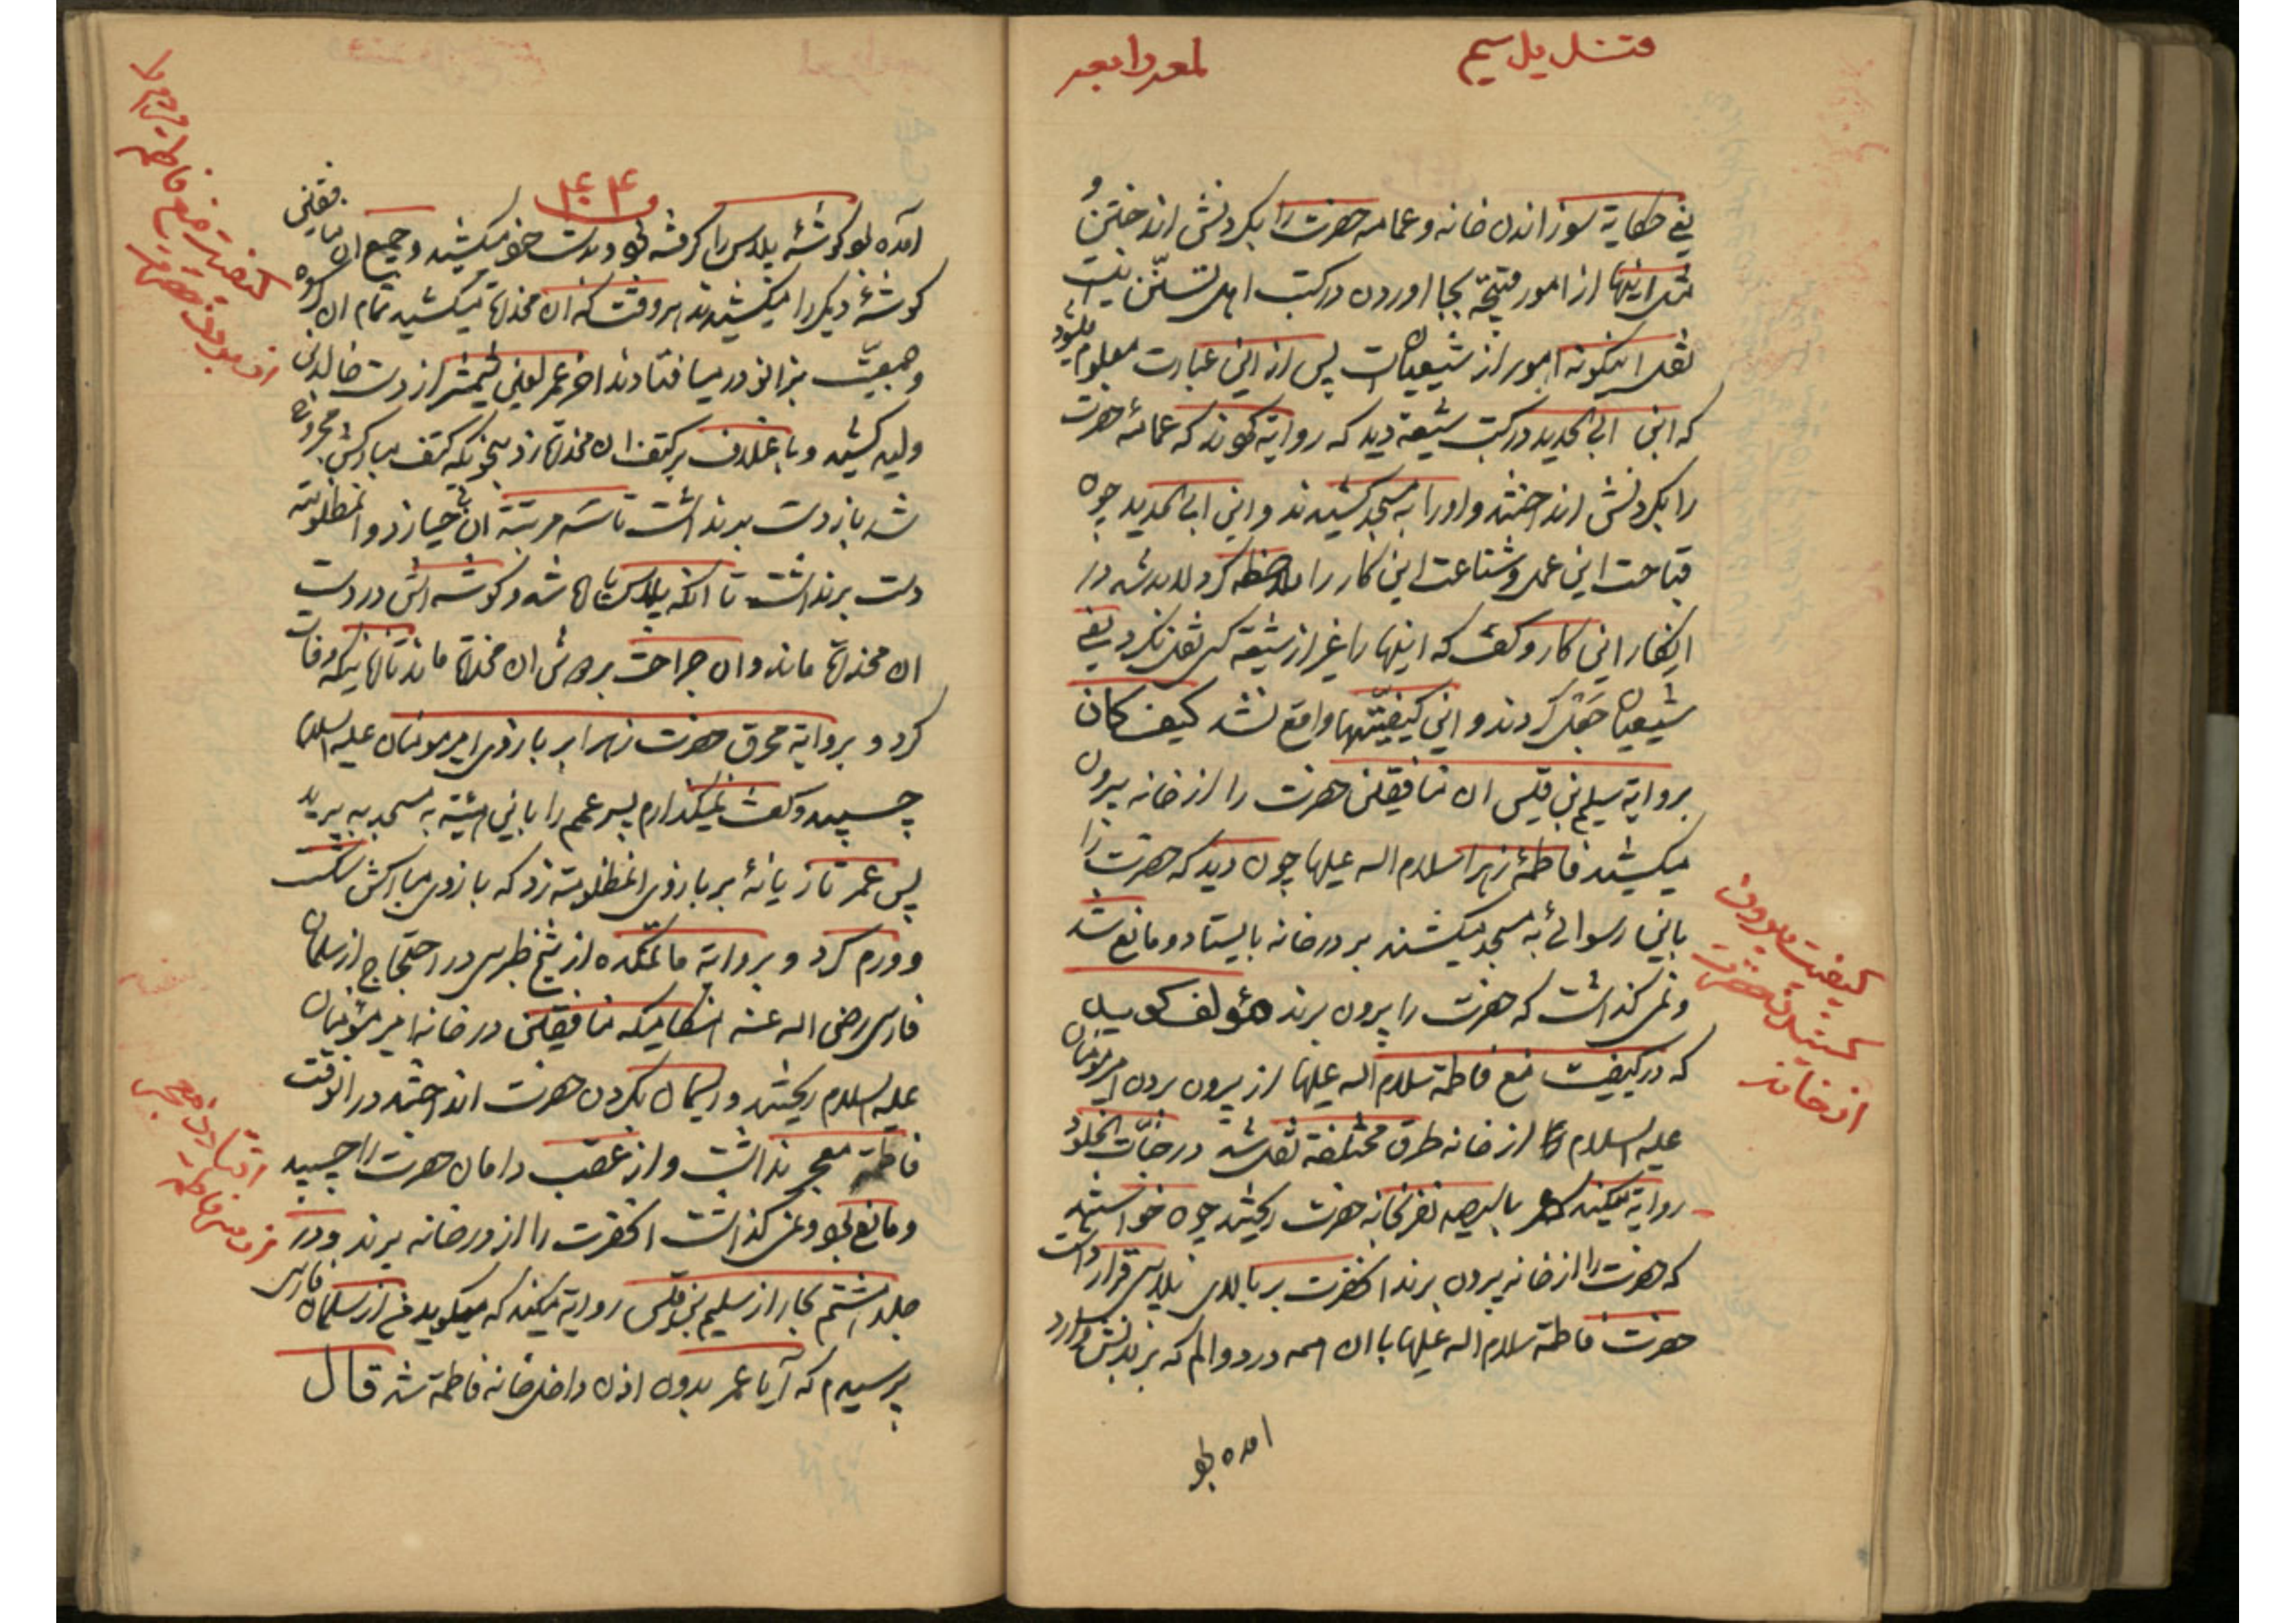 قتدیل سیم
لمعه رابعه
یعنے حکایة سوزاندن خانه و عمامه حضرت را بگردنش انداختن و
مثل اینها از امور قبیحّه بجا اوردن در کتب اهل تسنّن نیست
نقل اینگونه امور از شیعیان است پس از این عبارت معلوم میشود
که ابن ابی الحدید در کتب شیعة دید که روایة کردند که عمامهٔ حضرت
را بگردنش انداختند و او را به مسجد کشیدند و ابن ابی الحدید چون
قباحت این عمل و شناعت این کار را ملاحظه کرد لابد شد در
انکار این کار و گفت که اینها را غیر از شیعة کسی نقل نکرد یعنے
شیعیان جعل کردند و این کیفیّتها واقع نشد کیف کان
بروایة سلیم بن قلیس ان منافقین حضرت را از خانه بیرون
میکشیدند فاطمهٔ زهرا سلام اله علیها چون دید که حضرت را
باین رسوائے به مسجد میکشند بر در خانه بایستاد و مانع شد
و نمی گذاشت که حضرت را بیرون برند مؤلف کوید
که در کیفیت منع فاطمة سلام اله علیها از بیرون بردن امیر مؤمنان
علیه السلام از خانه طرق مختلفة نقل شد در جنّات الخلود
روایة میکند عمر با سیصد نفر بخانه حضرت ریختند چون خواستند
که حضرت را از خانه بیرون برند انحضرت بر بالای پلاسی قرار داشت
حضرت فاطمة سلام اله علیها با ان همه درد و الم که بر بدنش وارد
امده بود
کیفیت بیرون
کشیدن حضرت
از خانه
۴۰۴
آمده بود گوشهٔ پلاس را گرفته بود و بدست خود میکشید و جمیع ان منافقین
گوشهٔ دیگر را میکشیدند هر وقت که ان مخدرة میکشید تمام ان گروه
و جمعیّت بزانو در میافتادند اخر عمر لعین شمشیر از دست خالد بن
ولید کشید و با غلاف بر کتف ان مخدرة زد بنحویکه کتف مبارکش مجروح
شد باز دست برنداشت تا سه مرتبّة ان بیحیا زد و المظلومة
دست برنداشت تا انکه پلاس پاره شد و گوشه اش در دست
ان مخدرة ماند و ان جراحت بدوش ان مخدرة ماند تا انکه وفات
کرد و بروایة محرق حضرت زهرا بر بازوی امیر مومنان علیه السلام
چسپید و گفت نمیگذارم پسر عمم را باین هیئة به مسجد به برید
پس عمر تازیانهٔ بر بازوی المظلومة زد که بازوی مبارکش شکست
و ورم کرد و بروایة ماتمکده از شیخ طبرسی در احتجاج از سلمان
فارسی رضی اله عنه هنگامیکه منافقین در خانه امیر مؤمنان
علیه السلام ریختند و ریسمان بگردن حضرت انداختند در انوقت
فاطمة معجر نداشت و از عقب دامان حضرت را چسپید
و مانع بود و نمی گذاشت انحضرت را از در خانه برند و در
جلد هشتم بحار از سلیم بن قلیس روایة میکند که میگوید من از سلمان فارسی
پرسیدم که آیا عمر بدون اذن داخل خانه فاطمة شد قال
کیفیت منع فاطمة زهرا
از بردن حضرت
افتادن معجر
از سر فاطمه